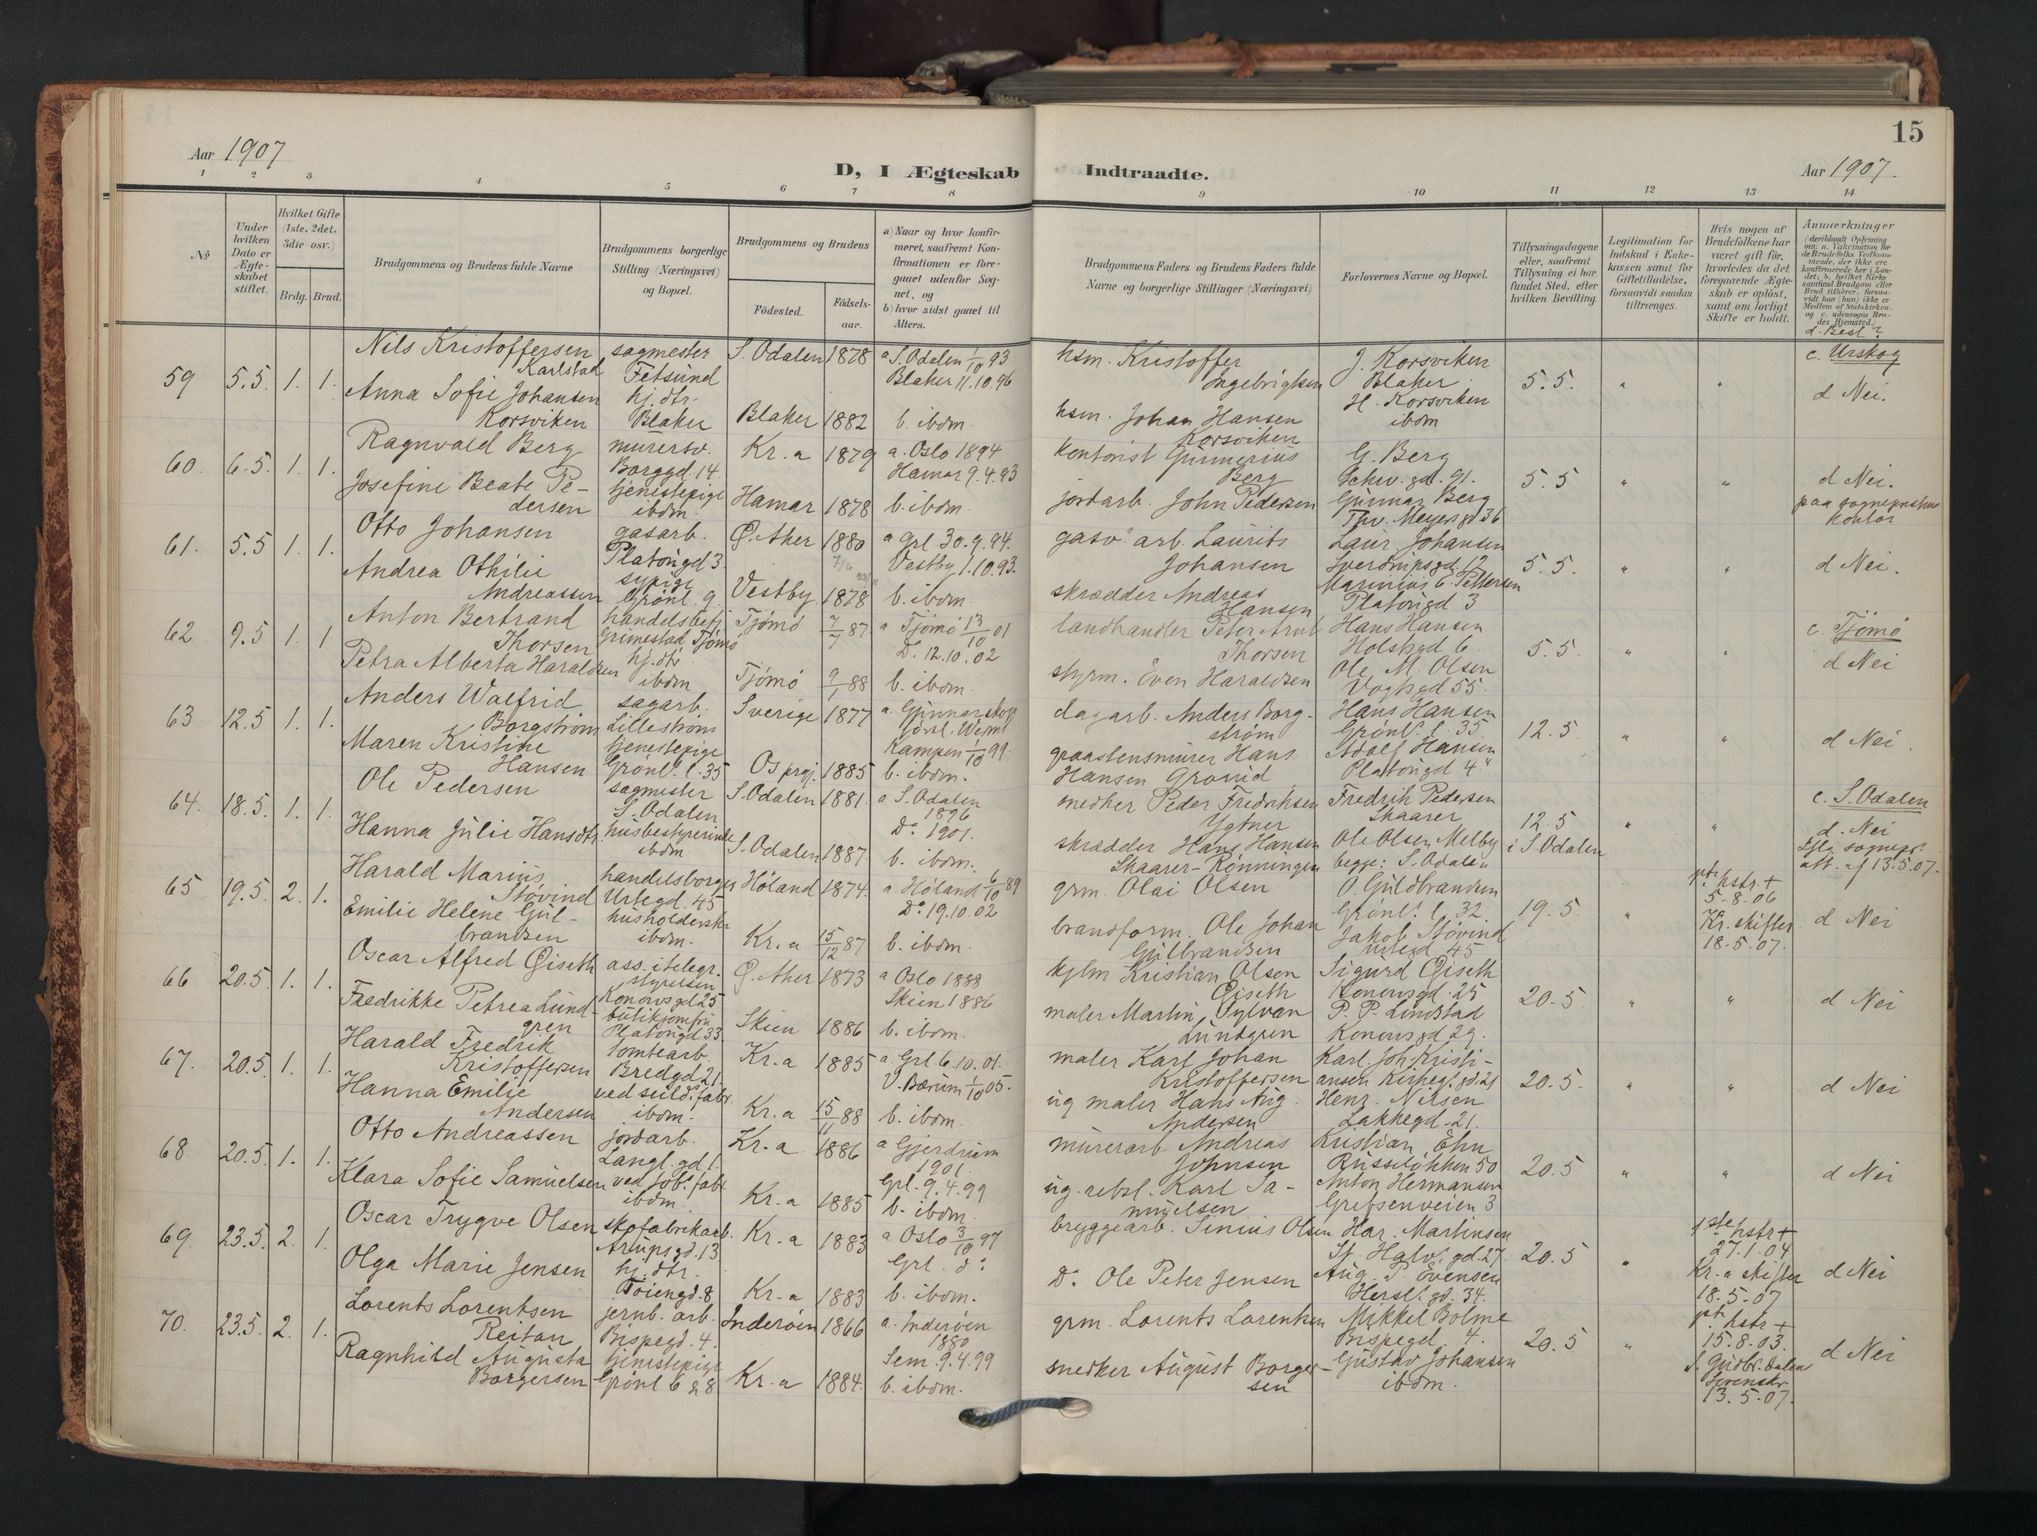 15
Aar 1907
D, I Ægteskab Indtraadte.
Aar 1907.
1 2 3 4 5 6 7 8 9 10 11 12 13 14
№
Under hvilken Dato er Ægteskabet stiftet.
Hvilket Gifte (1ste, 2det, 3die osv.)
Brdg. Brud.
Brudgommens og Brudens fulde Navne
Brudgommens borgerlige Stilling (Næringsvei) og Bopæl.
Brudgommens og Brudens
Födested.
Födsels-aar.
a) Naar og hvor konfirmeret, saafremt Konfirmationen er foregaaet udenfor Sognet, og
b) hvor sidst gaaet til Alters.
Brudgommens Faders og Brudens Faders fulde Navne og borgerlige Stillinger (Næringsvei)
Forlovernes Navne og Bopæl.
Tillysningsdagene eller, saafremt Tillysning ei har fundet Sted, efter hvilken Bevilling.
Legitimation for Indskud i Enkekassen samt for Giftetilladelse, forsaavidt saadan tiltrænges.
Hvis nogen af Brudefolkene har været gift før, hvorledes da det foregaaende Ægteskab er oplöst, samt om lovligt Skifte er holdt.
Anmærkninger
d. Best?
59 5.5. 1. 1.
Nils Kristoffersen
Karlstad
Anna Sofie Johansen
Korsviken
sagmester
Fetsund
hj. dtr.
Blaker
S. Odalen 1878
Blaker 1882
a S. Odalen 1/10 93
Blaker 11.10.96
b. ibdm.
hsm. Kristoffer
Ingebrigtsen
hsm. Johan Hansen
Korsviken
J. Korsviken
Blaker
H. Korsviken
ibdm
5.5. " "
c. Urskog
d Nei.
60. 6.5. 1. 1.
Ragnvald Berg
Josefine Beate Pe-
dersen
murersv.
Borggd. 14.
tjenestepige
ibdm.
Kr.a 1879
Hamar 1878
a. Oslo 1894
Hamar 9.4.93
b. ibdm.
kontorist Gunnerius
Berg
jordarb. John Pedersen
G. Berg
Schw. gd. 91.
Gunnar Berg
Thv. Meyersgd 36
5.5 " "
d Nei.
paa sogneprestens
kontor
61. 5.5 1. 1.
Otto Johansen
Andrea Othilie
Andreassen
gasarb.
Platougd 3
sypige
Grønl. 9
Ø. Aker 1880
Vestby 1878
a Grl 30.9.94.
Vestby 1.10.93.
b. ibdm.
gasv. arb. Laurits
Johansen
skrædder Andreas
Hansen
Laur. Johansen
Sverdrupsgd. 12
Marinius E. Pettersen
Platougd 3
5.5. " "
d Nei.
62 9.5 1. 1
Anton Bertrand
Thorsen
Petra Alberta Haraldsen
handelsbetj
Grimestad, Tjømø
hj. dtr
ibdm
Tjømø 7/7 87.
Tjømø 9/1 88
a Tjømø 13/10 01
D. 12.10.02
b. ibdm.
landhandler Peter Arnt
Thorsen
styrm. Even Haraldsen
Hans Hansen
Holstgd 6.
Ole M. Olsen
Vogtsgd 55.
5.5. " "
c. Tjømø
d Nei
63 12.5 1. 1.
Anders Walfrid
Borgstrøm
Maren Kristine
Hansen
sagarb.
Lillestrøm
tjenestepige
Grønl. l. 35
Sverige 1877
Os prgj. 1885
a. Gunnarskog
Kampen 1/10 99.
b. ibdm.
dagarb. Anders Borg-
strøm
graastensmurer Hans
Hansen Grøvid
Hans Hansen
Grønl. l. 35
Adolf Hansen
Platougd 4"
12.5 " "
d Nei.
64. 18.5 1. 1.
Ole Pedersen
Hanna Julie Hansdtr
sagmester
S. Odalen
husbestyrerinde
ibdm
S. Odalen 1881.
S. Odalen 1887.
a S. Odalen
1896
D. 1901.
b. ibdm.
snedker Peder Fredriksen
Ygtner
skrædder Hans Hansen
Skaarer-Rønningen
Fredrik Pedersen
Skaarer
Ole Olsen Melby
begge: S. Odalen
12.5
i S. Odalen
" "
c. S. Odalen
d. Nei
Iflg. sognepr.
att. af 13.5.07.
65 19.5 2. 1.
Harald Marius
Støvind
Emilie Helene Gul-
brandsen
handelsborger
Urtegd. 45
husholderske
ibdm.
Høland 1874.
Kr.a 15/12 87
a Høland 6/10 89
D. 19.10.02
b. ibdm.
grm. Olai Olsen
bransform. Ole Johan
Gulbrandsen
O. Guldbrandsen
Grønl. l. 32.
Jakob Støvind
Urtegd 45
19.5. "
hstr +
5-8.06
Kr. skifter
18-5.07.
d Nei
66 20.5 1. 1.
Oscar Alfred Qiseth
Fredrikke Petrea Lund-
gren
ass. i telegr.
styrelsen
Konowsgd 25
butikjomfru
Platougd. 33
Ø. Aker 1873
Skien 1886
a Oslo 1888
Skien 1886
b. ibdm.
kjlm Kristian Olsen
Qiseth
maler Martin Sylvan
Lundgren
Sigurd Qiseth
Konowsgd. 25
P. P. Lindstad
Konowsgd 29.
20.5 " "
d Nei
67. 20.5. 1. 1.
Harald Fredrik
Kristoffersen
Hanna Emilie
Andersen
tomtearb.
Bredgd 21
ved seild. fabr.
ibdm.
Kr.a 1885
Kr.a 15/11 88
a. Grl 6.10.01.
V. Bærum 1/10 05.
b. ibdm.
maler Karl Johan
Kristoffersen
ug maler Hans Aug.
Andersen
Karl. Joh. Kristi-
ansen Kirkegt. gd. 21
Henr. Nilsen
Lakkegd. 21.
20.5. " "
d Nei
68 20.5. 1. 1.
Otto Andreassen
Klara Sofie Samuelsen
jordarb.
Langl. gd 1.
ved Job. fabr.
ibdm.
Kr.a 1886
Kr.a 1885
a Gjerdrum
1901.
Grl. 9.4.99
b. ibdm.
murerarb Andreas
Johnsen
ug. rebsl. Karl Sa-
muelsen
Kristian Ehn
Russeløkken 50
Anton Hermansen
Grefsenveien 3
20.5 " "
d Nei
69. 23.5. 2. 1.
Oscar Trygve Olsen
Olga Marie Jensen
skofabrikarb.
Arupsgd. 13
hj. dtr.
Tøiengd. 8
Kr.a 1883
Kr.a 1883
a Oslo 3/10 97
Grl. d:
b. ibdm.
bryggearb. Sinius Olsen
D. Ole Peter Jensen
Har. Martinsen
St. Halv. gd. 27.
Aug. P. Evensen
Hersl. gd. 34.
20.5 "
1ste hstr +
27.1.04
Kr.a skifter
18.5.07
d Nei
70. 23.5. 2. 1.
Lorents Lorentsen
Reitan
Ragnhild Augusta
Borgersen
jernb. arb.
Bispegd. 4.
tjenestepige
Grønl 6 & 8
Inderøen 1866
Kr.a 1884.
a. Inderøen
1880
Sem. 9.4.99
b. ibdm.
grm. Lorents Lorentsen
snedker August Borger-
sen
Mikkel Bolme
Bispegd. 4.
Gustav Johansen
ibdm.
20.5 "
hstr +
15.8.03.
S. Gudbr. dalen
Sorenskr.
13.5.07.
d Nei